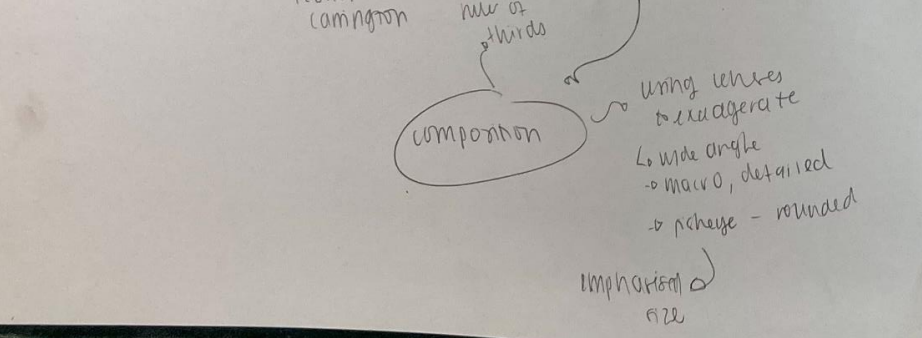 carrington
rule of
thirds
composition
using lenses
to exagerate
wide angle
macro, detailed
fisheye - rounded
emphasise
size